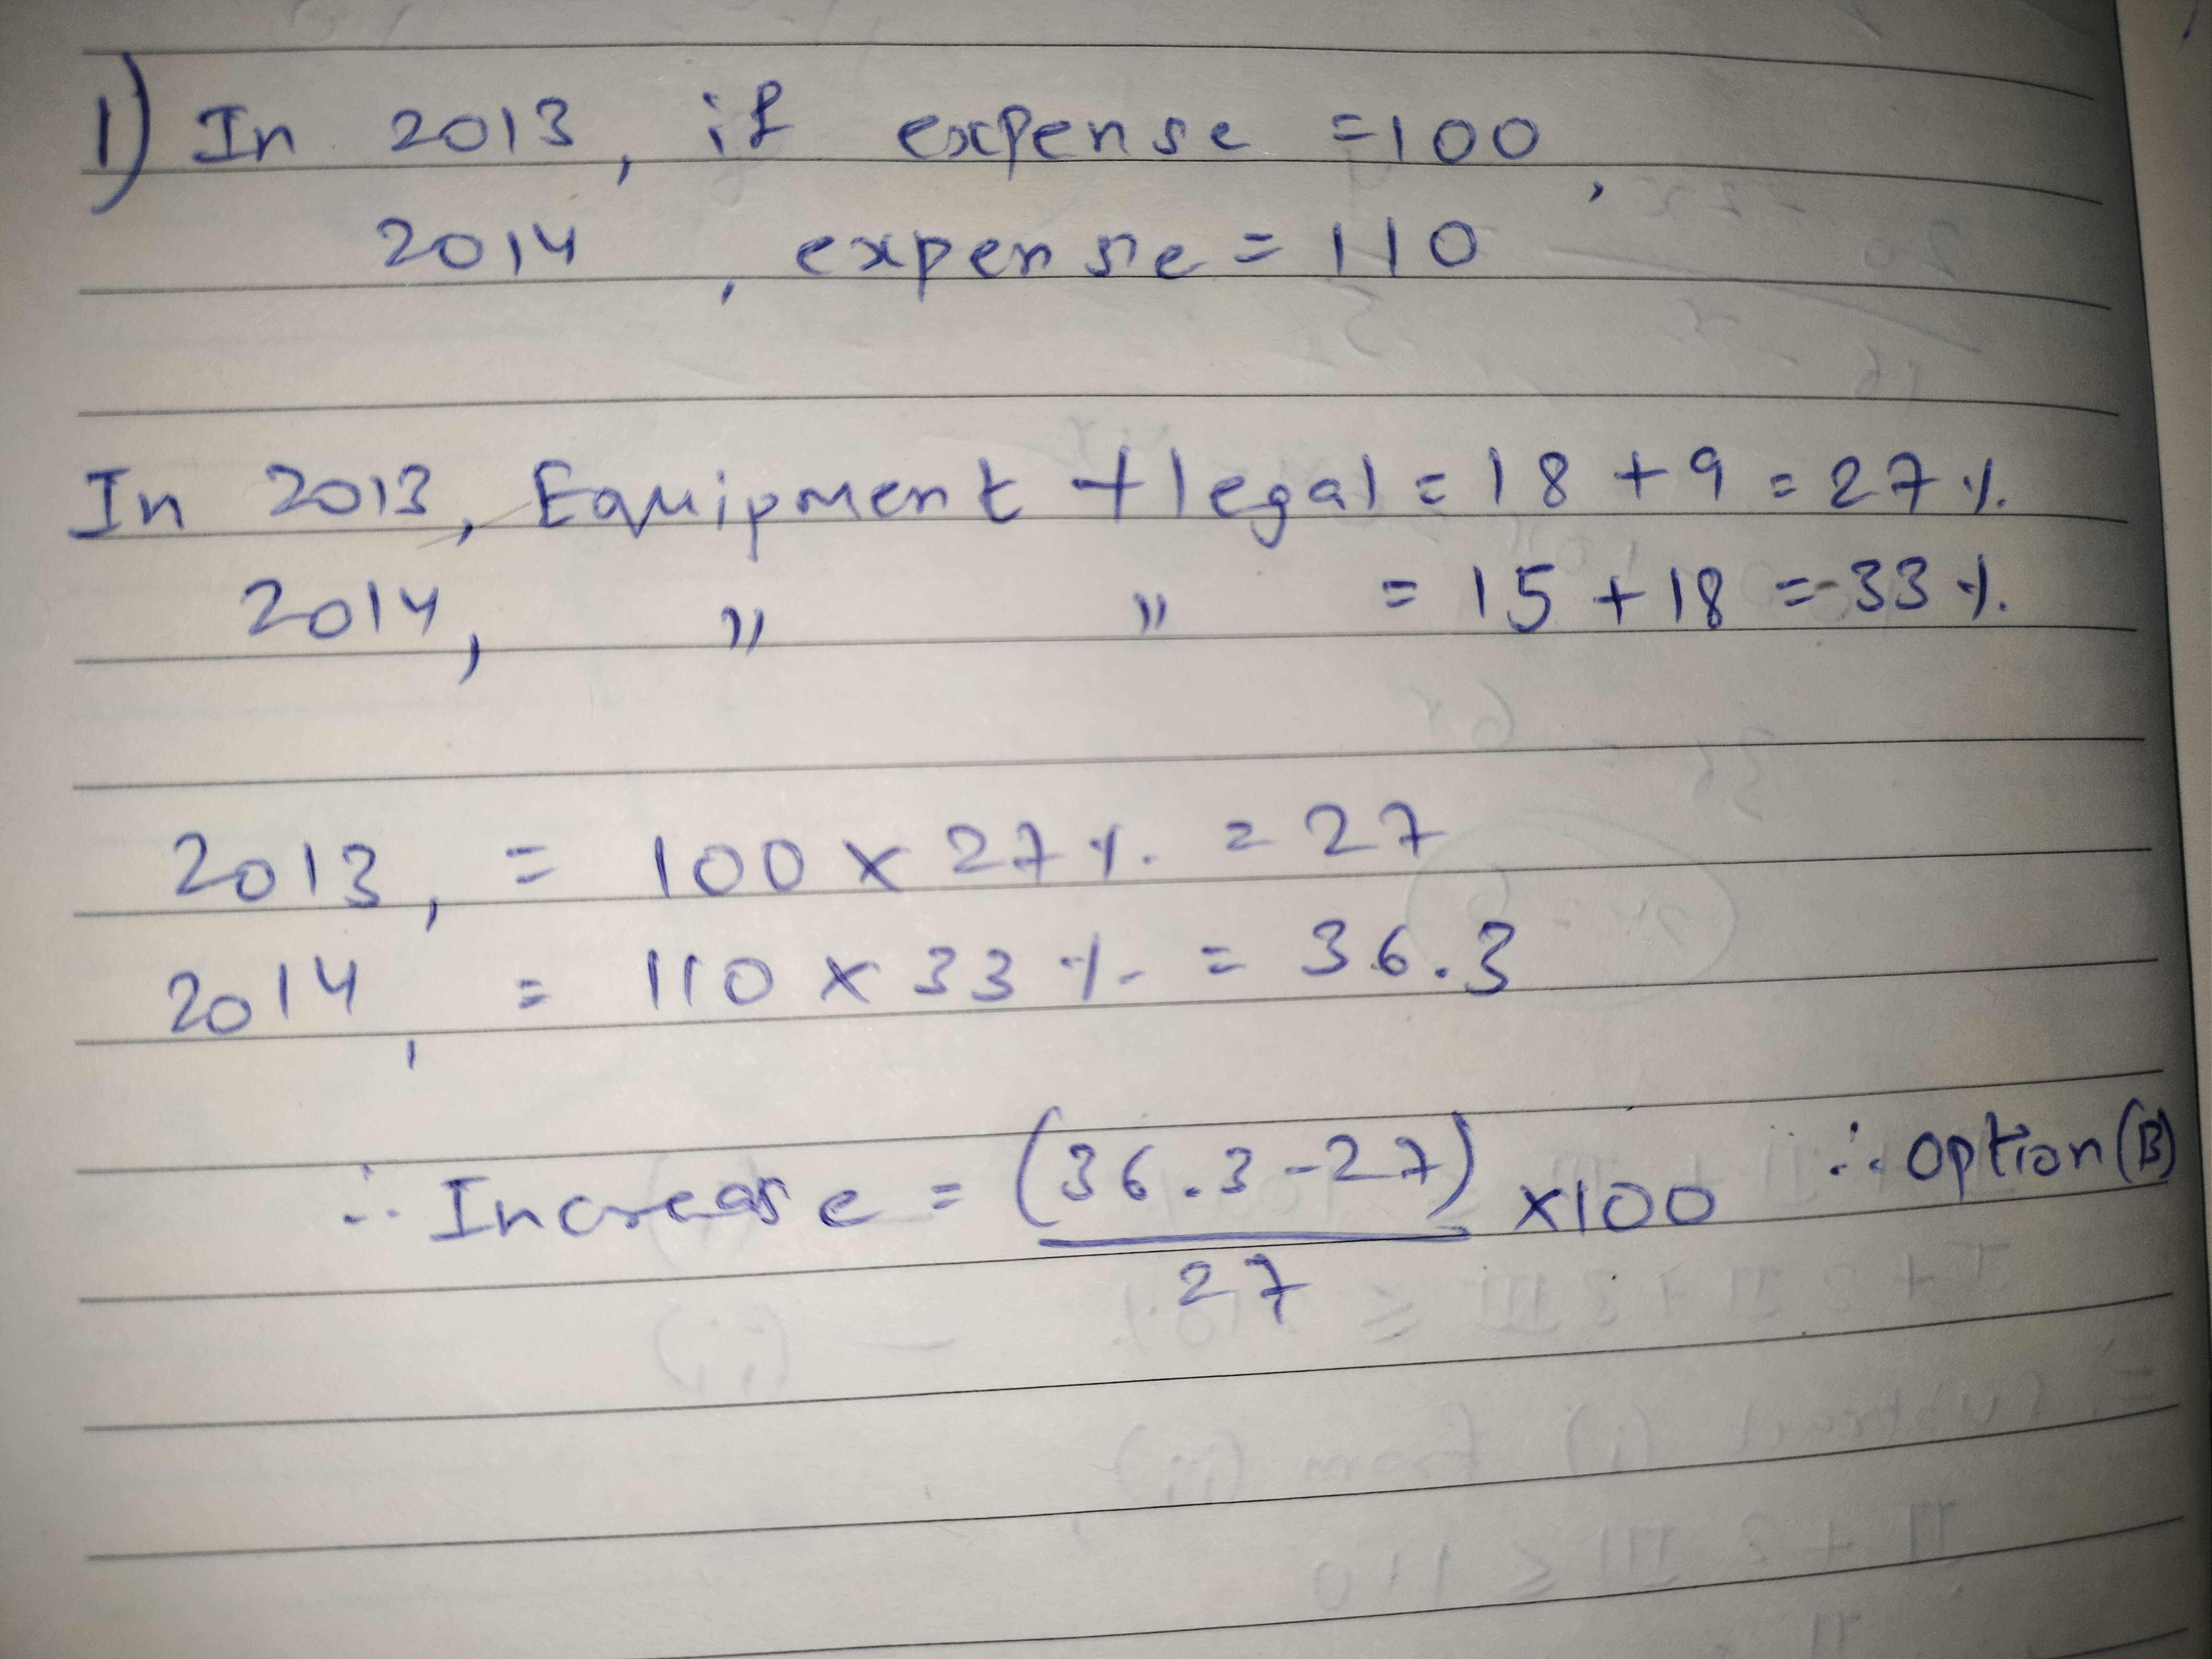 1) In 2013, if expense = 100,
2014, expense = 110
In 2013, Equipment + legal = 18 + 9 = 27%
2014, " " = 15 + 18 = 33%
2013, = 100 × 27% = 27
2014, = 110 × 33% = 36.3
∴ Increase = (36.3-27) ×100 ∴ option (B)
27